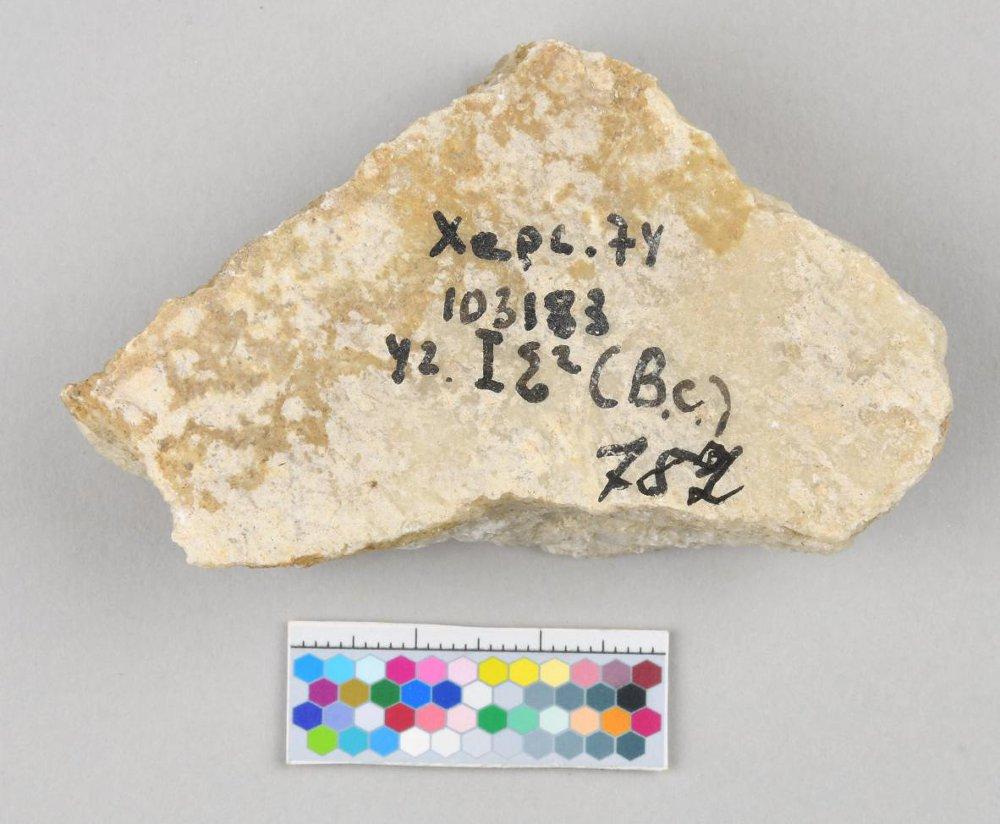 Херс. 74
103183
уг. IΞ² (В.С.)
782